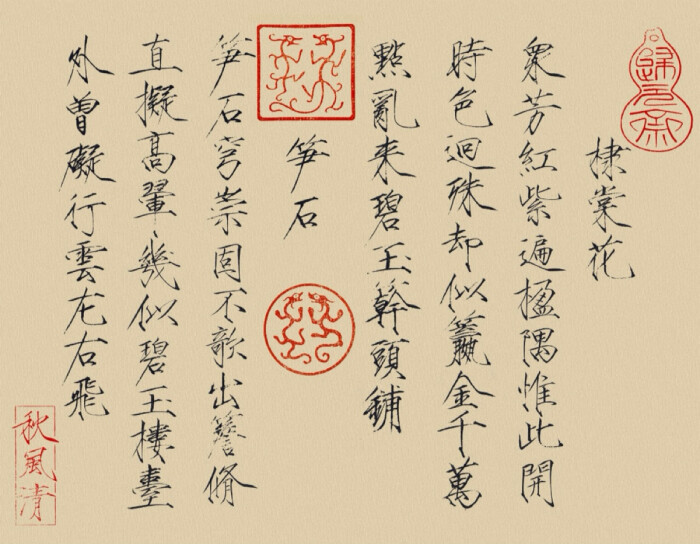 棣棠花
衆芳紅紫遍楹隅惟此開
時色迴殊却似籯金千萬
點亂来碧玉簳頭鋪
笋石
笋石穹崇固不欹出簷脩
直擬高翬幾似碧玉樓臺
外曾礙行雲左右飛
秋風清